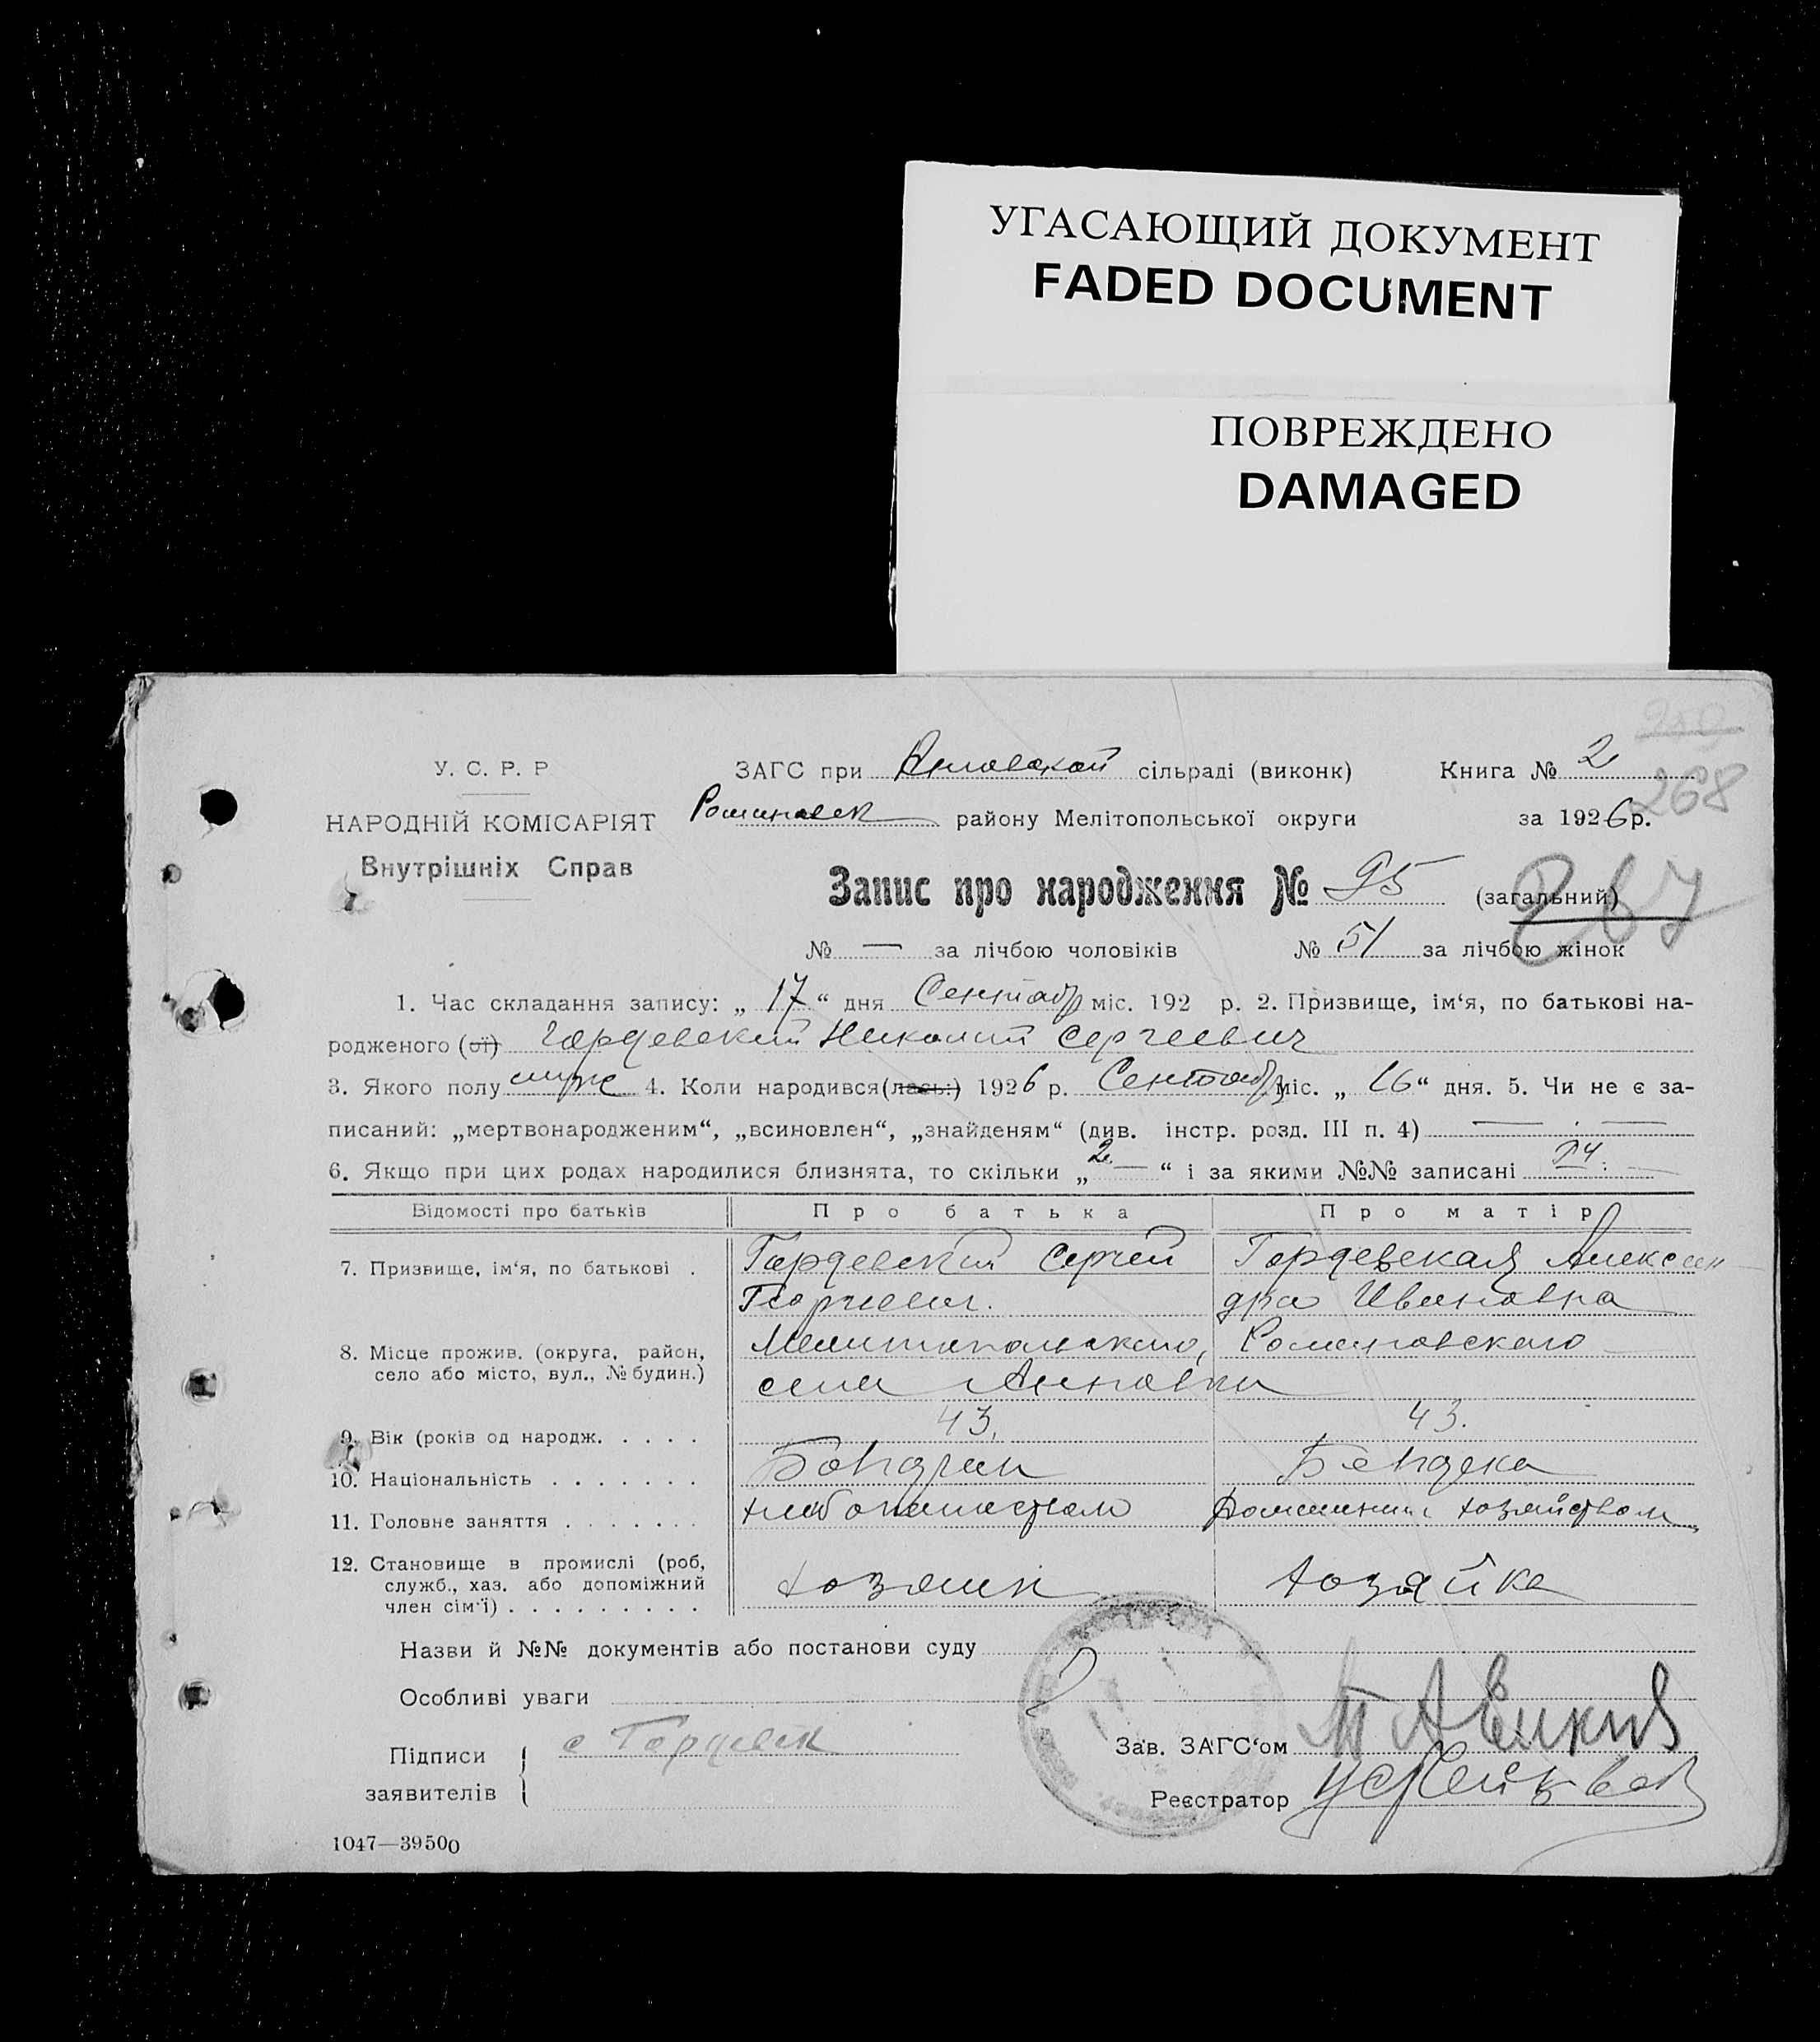 УГАСАЮЩИЙ ДОКУМЕНТ
FADED DOCUMENT
ПОВРЕЖДЕНО
DAMAGED
268
У. С. Р. Р
ЗАГС при сільраді (виконк) Книга № 2
НАРОДНІЙ КОМІСАРІЯТ
району Мелітопольської округи за 1926 р.
Внутрішніх Справ
Запис про народження № 95 (загальний)
267
№ — за лічбою чоловіків № 51 за лічбою жінок
1. Час складання запису: „ 17 “ дня Сентябр міс. 192 р. 2. Призвище, ім‘я, по батькові на-
родженого (ої) Гордевский Николай Сергеевич
3. Якого полу муж 4. Коли народився (лась:) 1926 р. Сентябр міс. „ 16 “ дня. 5. Чи не є за-
писаний: „мертвонародженим“, „всиновлен“, „знайденям“ (див. інстр. розд. III п. 4) — . —
6. Якщо при цих родах народилися близнята, то скільки „ 2 — “ і за якими №№ записані
Відомості про батьків Про батька Про матір
7. Призвище, ім‘я, по батькові . Гордевский Сергей Гордевская Алексан
Георгиевич. дра Ивановна
8. Місце прожив. (округа, район, Мелитопольского, Романовского
село або місто, вул., № будин.) села Анновки
9. Вік (років од народж. . . . . 43, 43.
10. Національність . . . . . . .
11. Головне заняття . . . . . . . хлебопашеством Домашним хозяйством
12. Становище в промислі (роб,
служб., хаз. або допоміжний хозяин хозяйка
член сім‘ї) . . . . . . . . .
Назви й №№ документів або постанови суду
Особливі уваги
Підписи
заявителів
Зав. ЗАГС‘ом
Реєстратор
1047—39500